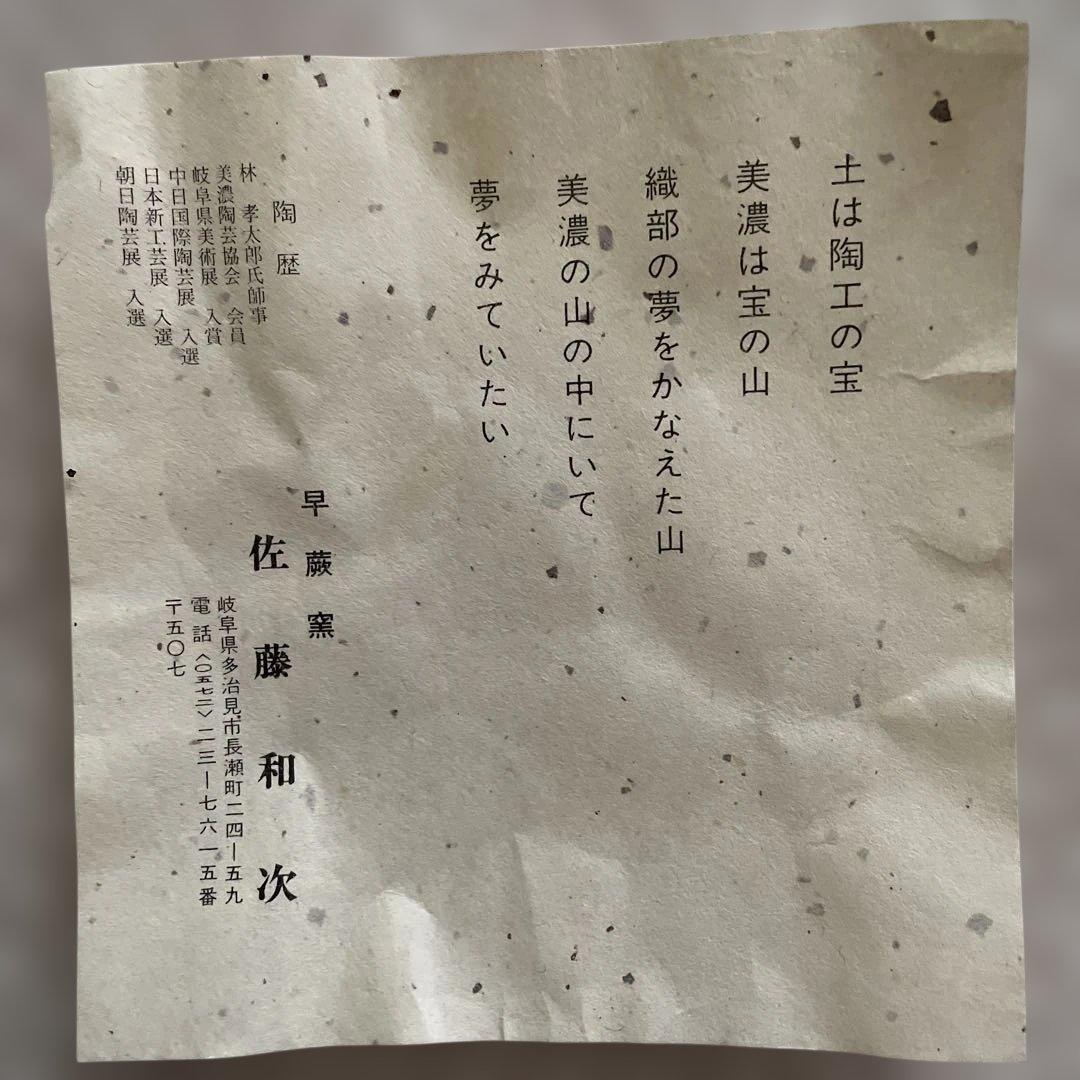 土は陶工の宝
美濃は宝の山
織部の夢をかなえた山
美濃の山の中にいて
夢をみていたい
陶歴
林 孝太郎氏師事
美濃陶芸協会 会員
岐阜県美術展 入賞
中日国際陶芸展 入選
日本新工芸展 入選
朝日陶芸展 入選
早蕨窯
佐藤和次
岐阜県多治見市長瀬町二四ー五九
電話〈〇五七二〉二三ー七六一五番
〒五〇七